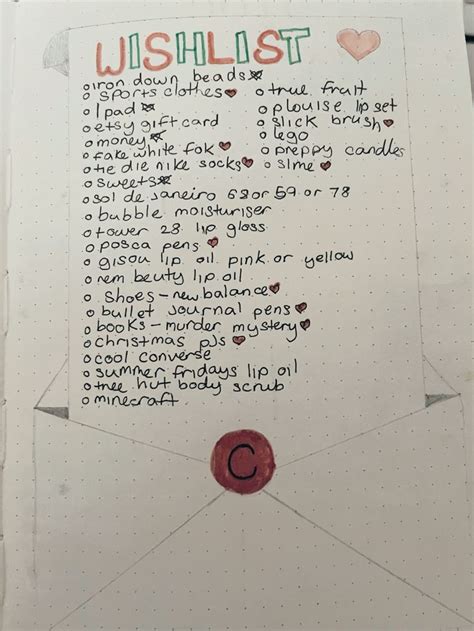 WISHLIST
iron down beads
sports clothes
Ipad
etsy giftcard
money
fake white fok
tie die nike socks
sweets
sol de janeiro 68 or 59 or 78
bubble moisturiser
tower 28 lip gloss
posca pens
gisou lip oil pink or yellow
rem beuty lip oil
shoes - new balance
bullet journal pens
books - murder mystery
christmas pjs
cool converse
summer fridays lip oil
tree hut body scrub
minecraft
true fruit
plouise lip set
slick brush
lego
preppy candles
slme
C